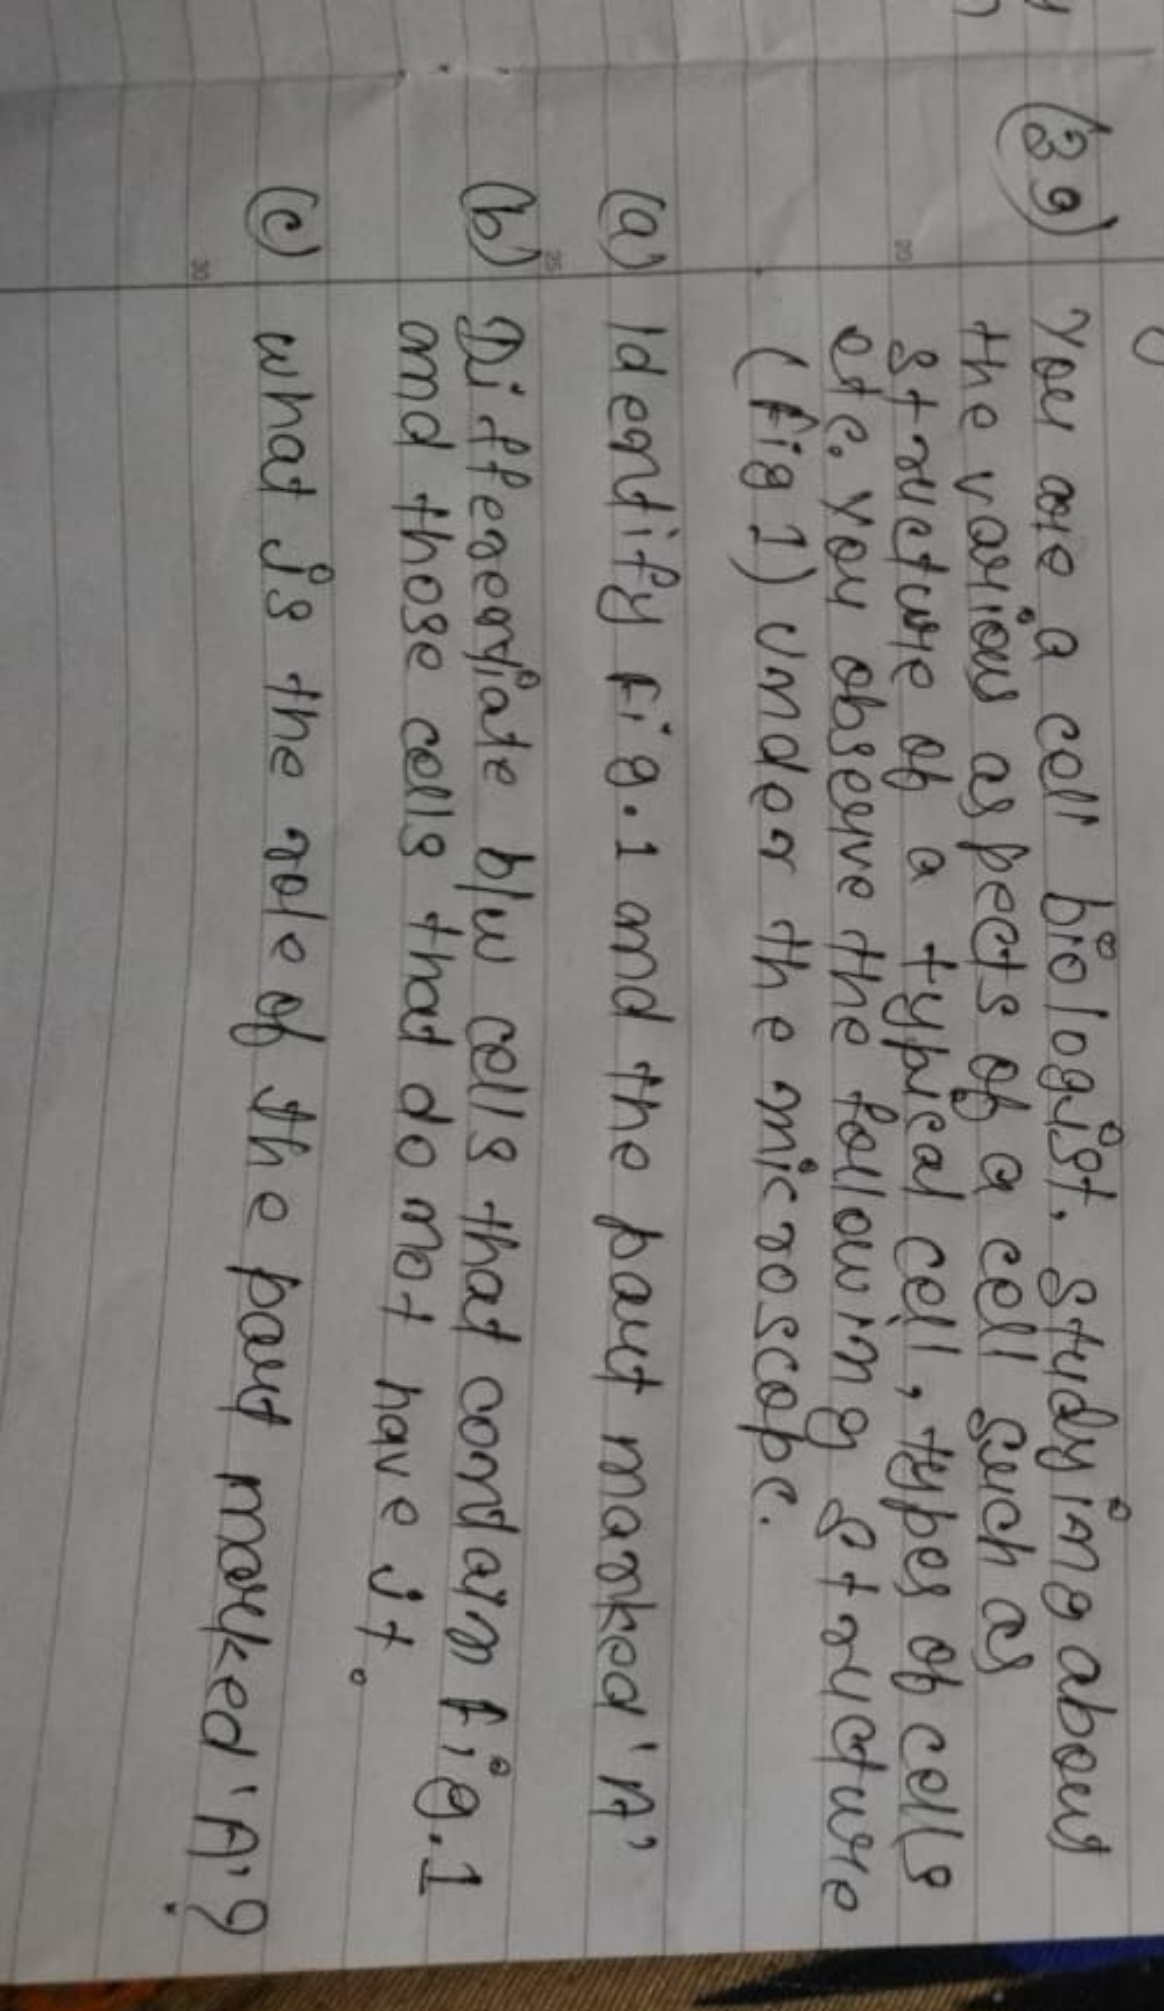 (39) You are a cell biologist. Studying about
the various aspects of a cell such as
structure of a typical cell, types of cells
etc. You observe the following structure
(fig 1) under the microscope.
(a) Identify fig. 1 and the part marked 'A'
(b) Differentiate b/w cells that contain fig. 1
and those cells that do not have it.
(c) what is the role of the part marked 'A'?
20
25
30